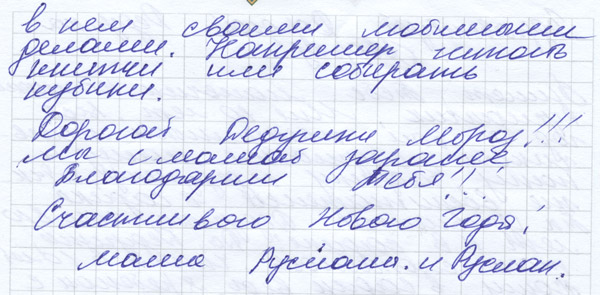 в нем своими любимыми
делами. Например читать
книжки или собирать
кубики.
Дорогой Дедушка Мороз!!!
мы с мамой заранее
Благодарим Тебя!!!
Счастливого Нового Года!
мама Руслана. и Руслан.